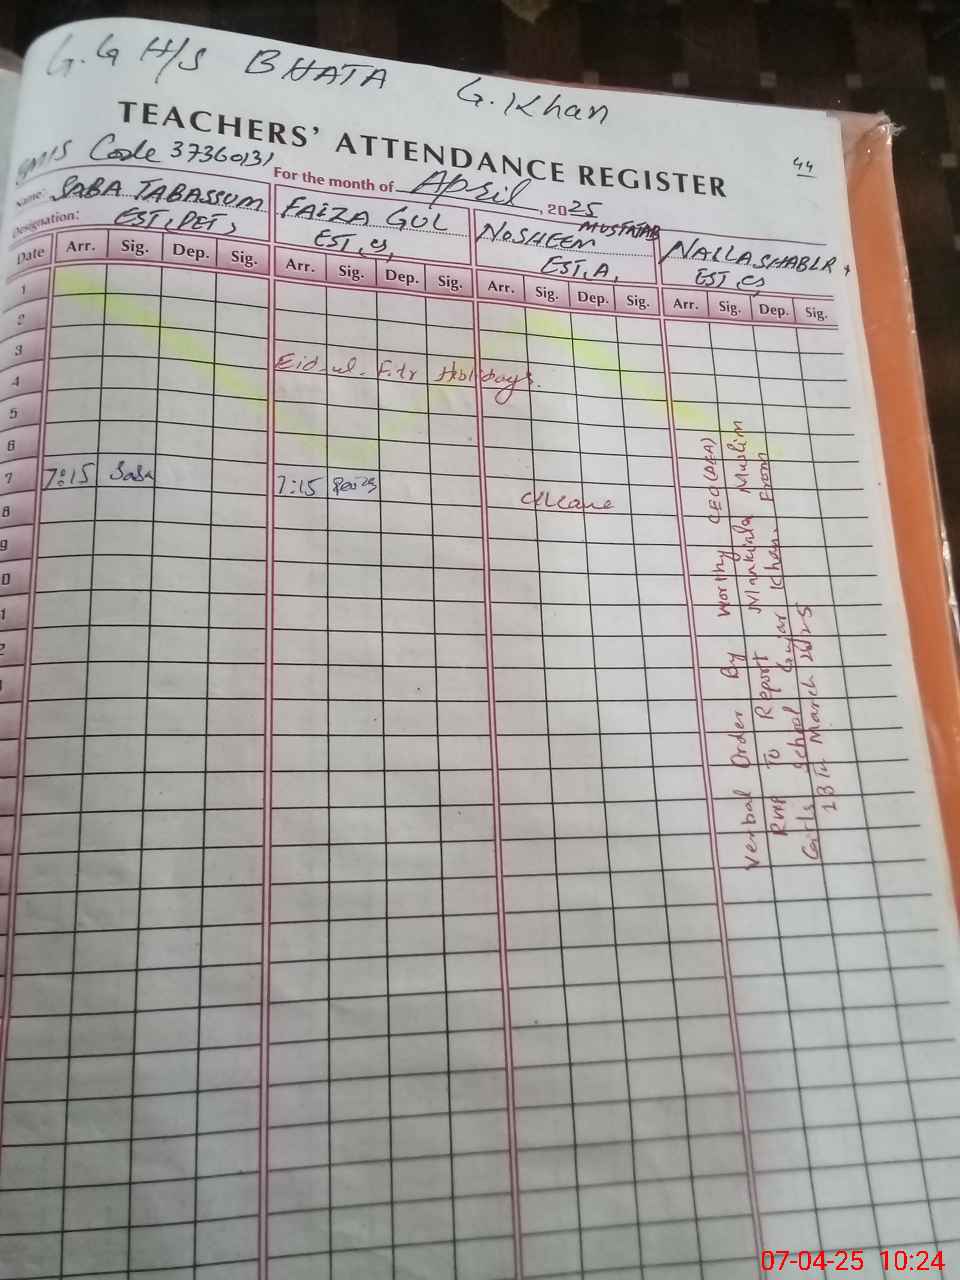 G.G H/S BHATA G.Khan
TEACHERS' ATTENDANCE REGISTER
44
EMIS Code 37360131
For the month of April, 2025
Name: SABA TABASSUM
FAIZA GUL
NOSHEEN MUSTATAB
Designation: EST, PET,
EST, CS,
EST, A,
EST CS
Date Arr. Sig. Dep. Sig. Arr. Sig. Dep. Sig. Arr. Sig. Dep. Sig. Arr. Sig. Dep. Sig.
1
2
3
Eid-ul-Fitr Holidays.
4
5
6
7 7:15 Saba 7:15
8
9
0
1
2
Verbal Order By Worthy CEO(DEA)
RWP To Report Mankiala Muslim
Girls School Gujar Khan. From
13th March 2025
07-04-25 10:24